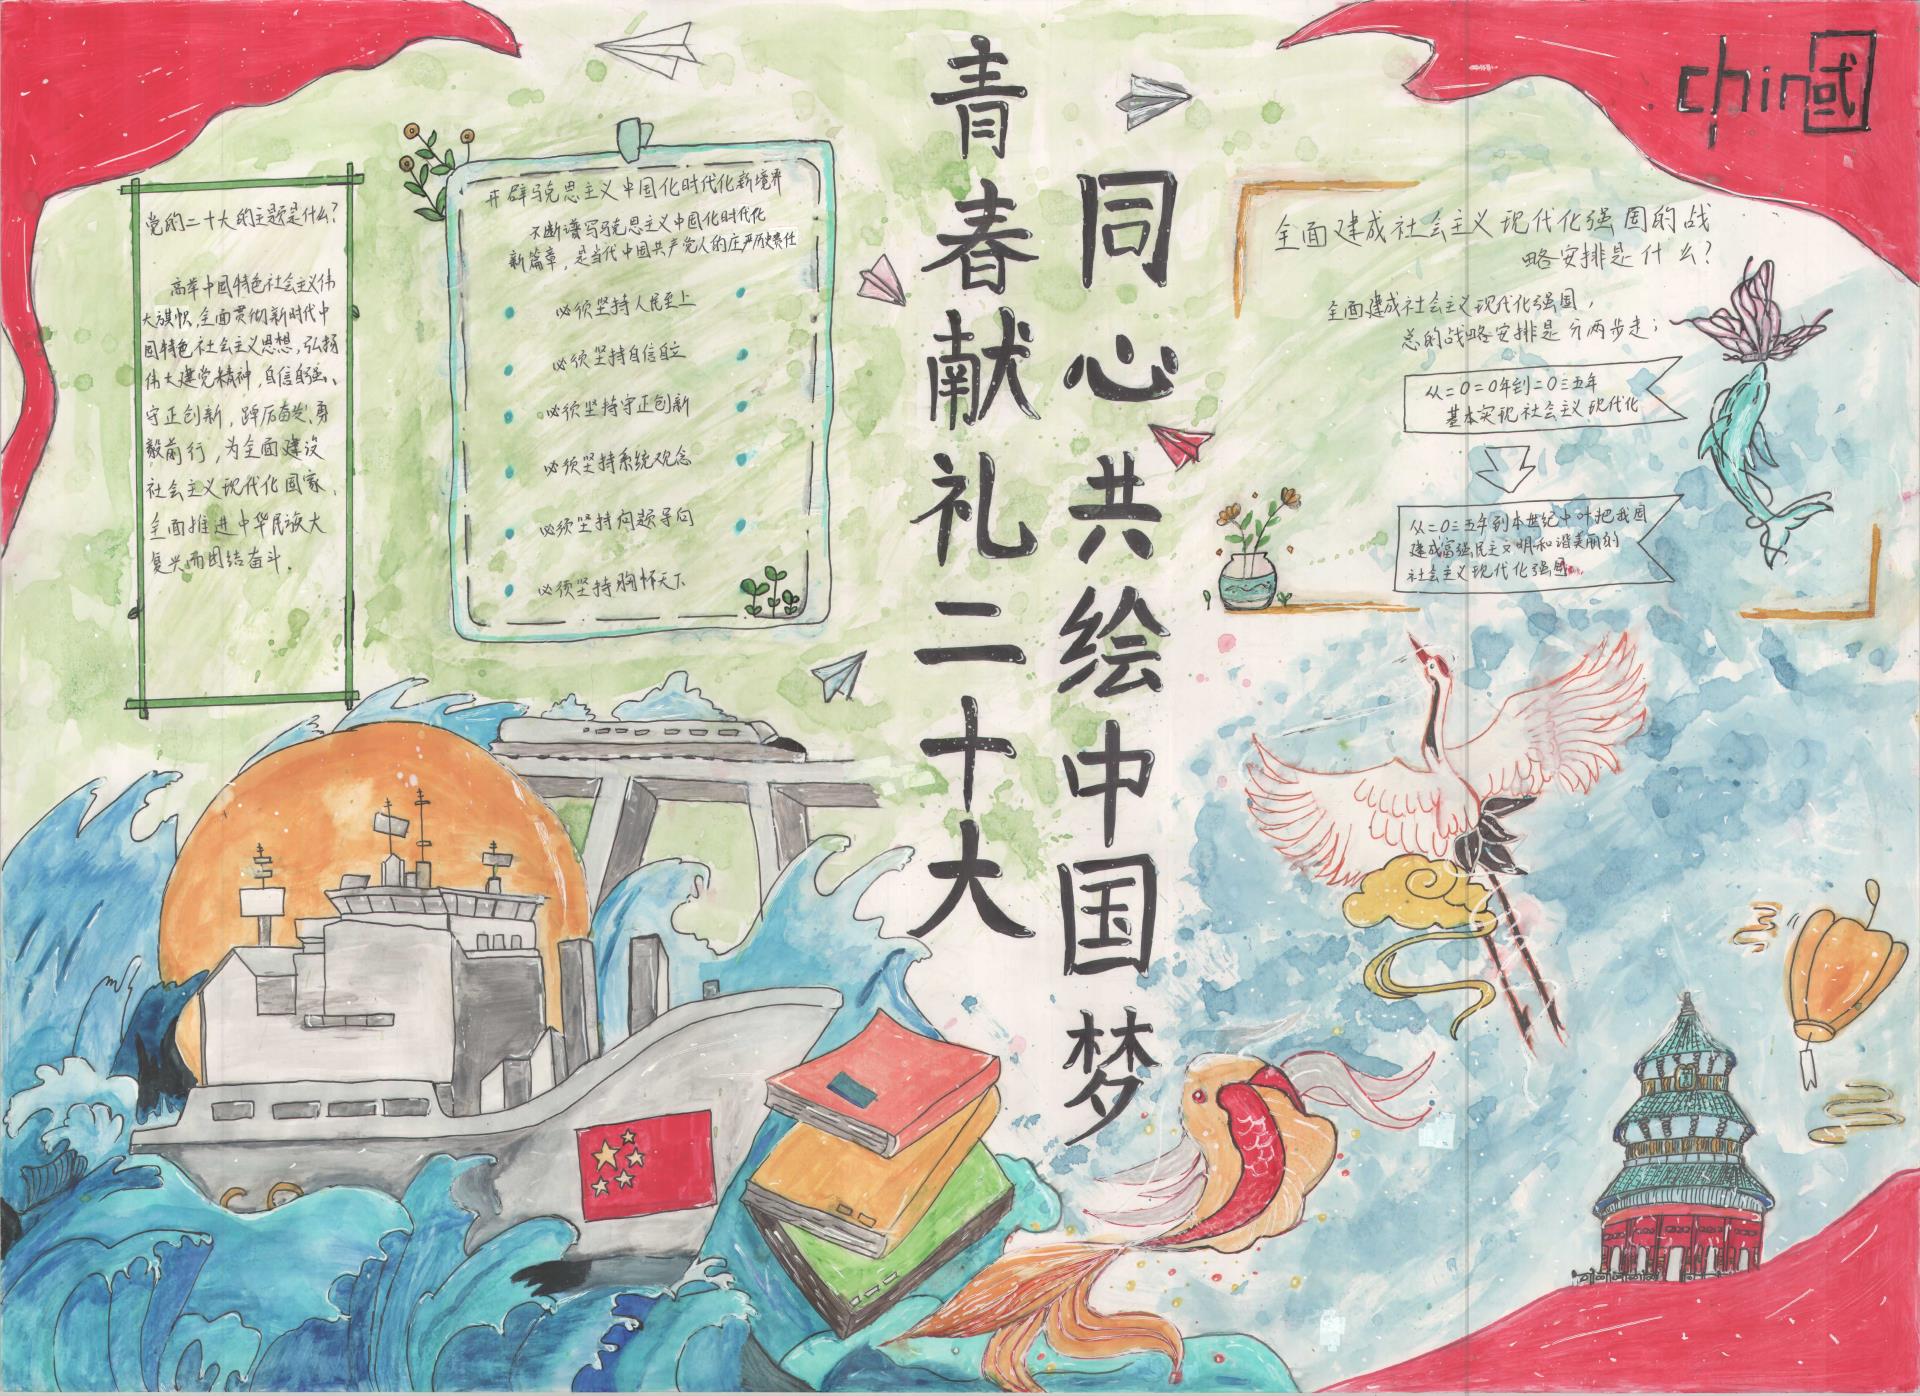 青春献礼二十大
同心共绘中国梦
chin國
党的二十大的主题是什么?
高举中国特色社会主义伟
大旗帜,全面贯彻新时代中
国特色社会主义思想,弘扬
伟大建党精神,自信自强、
守正创新,踔厉奋发、勇
毅前行,为全面建设
社会主义现代化国家、
全面推进中华民族大
复兴而团结奋斗.
开辟马克思主义中国化时代化新境界
不断谱写马克思主义中国化时代化
新篇章,是当代中国共产党人的庄严历史责任
必须坚持人民至上
必须坚持自信自立
必须坚持守正创新
必须坚持系统观念
必须坚持问题导向
必须坚持胸怀天下
全面建成社会主义现代化强国的战
略安排是什么?
全面建成社会主义现代化强国,
总的战略安排是分两步走;
从二〇二〇年到二〇三五年
基本实现社会主义现代化
从二〇三五年到本世纪中叶把我国
建成富强民主文明和谐美丽的
社会主义现代化强国.